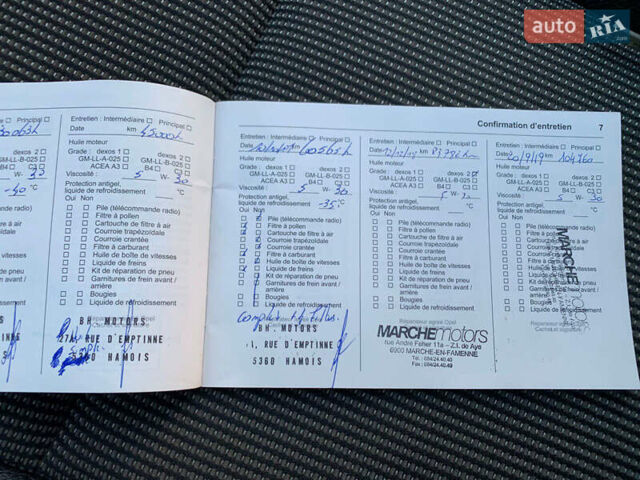 auto RIA .com
Principal
km
°C
Entretien : Intermédiaire Principal
Date km 45000
Huile moteur
Grade : dexos 1 dexos 2
GM-LL-A-025 GM-LL-B-025
ACEA A3 B4 C3
Viscosité : 5 W- 30
Protection antigel,
liquide de refroidissement °C
Oui Non
Pile (télécommande radio)
Filtre à pollen
Cartouche de filtre à air
Courroie trapézoïdale
Courroie crantée
Filtre à carburant
Huile de boîte de vitesses
Liquide de freins
Kit de réparation de pneu
Garnitures de frein avant /
arrière
Bougies
Liquide de refroidissement
BH MOTORS
27A, RUE D'EMPTINNE
5360 HAMOIS
Confirmation d'entretien 7
Entretien : Intermédiaire Principal
Date km
Huile moteur
Grade : dexos 1 dexos 2
GM-LL-A-025 GM-LL-B-025
ACEA A3 B4 C3
Viscosité : 5 W- 30
Protection antigel,
liquide de refroidissement -35 °C
Oui Non
Pile (télécommande radio)
Filtre à pollen
Cartouche de filtre à air
Courroie trapézoïdale
Courroie crantée
Filtre à carburant
Huile de boîte de vitesses
Liquide de freins
Kit de réparation de pneu
Garnitures de frein avant /
arrière
Bougies
Liquide de refroidissement
BH. MOTORS
RUE D'EMPTINNE
5360 HAMOIS
Entretien : Intermédiaire Principal
Date km
Huile moteur
Grade : dexos 1 dexos 2
GM-LL-A-025 GM-LL-B-025
ACEA A3 B4 C3
Viscosité : 5 W-
Protection antigel,
liquide de refroidissement °C
Oui Non
Pile (télécommande radio)
Filtre à pollen
Cartouche de filtre à air
Courroie trapézoïdale
Courroie crantée
Filtre à carburant
Huile de boîte de vitesses
Liquide de freins
Kit de réparation de pneu
Garnitures de frein avant /
arrière
Bougies
Liquide de refroidissement
Réparateur agréé Opel
MARCHEmotors
rue André Feher 11a – Z.I. de Aye
6900 MARCHE-EN-FAMENNE
Tél. : 084/24.40.40
Fax : 084/24.40.49
Entretien : Intermédiaire Principal
Date 20/9/19 km 104760
Huile moteur
Grade : dexos 1 dexos 2
GM-LL-A-025 GM-LL-B-025
ACEA A3 B4 C3
Viscosité : 5 W- 30
Protection antigel,
liquide de refroidissement °C
Oui Non
Pile (télécommande radio)
Filtre à pollen
Cartouche de filtre à air
Courroie trapézoïdale
Courroie crantée
Filtre à carburant
Huile de boîte de vitesses
Liquide de freins
Kit de réparation de pneu
Garnitures de frein avant /
arrière
Bougies
Liquide de refroidissement
Réparateur agréé Opel
Cachet et signature
MARCHE